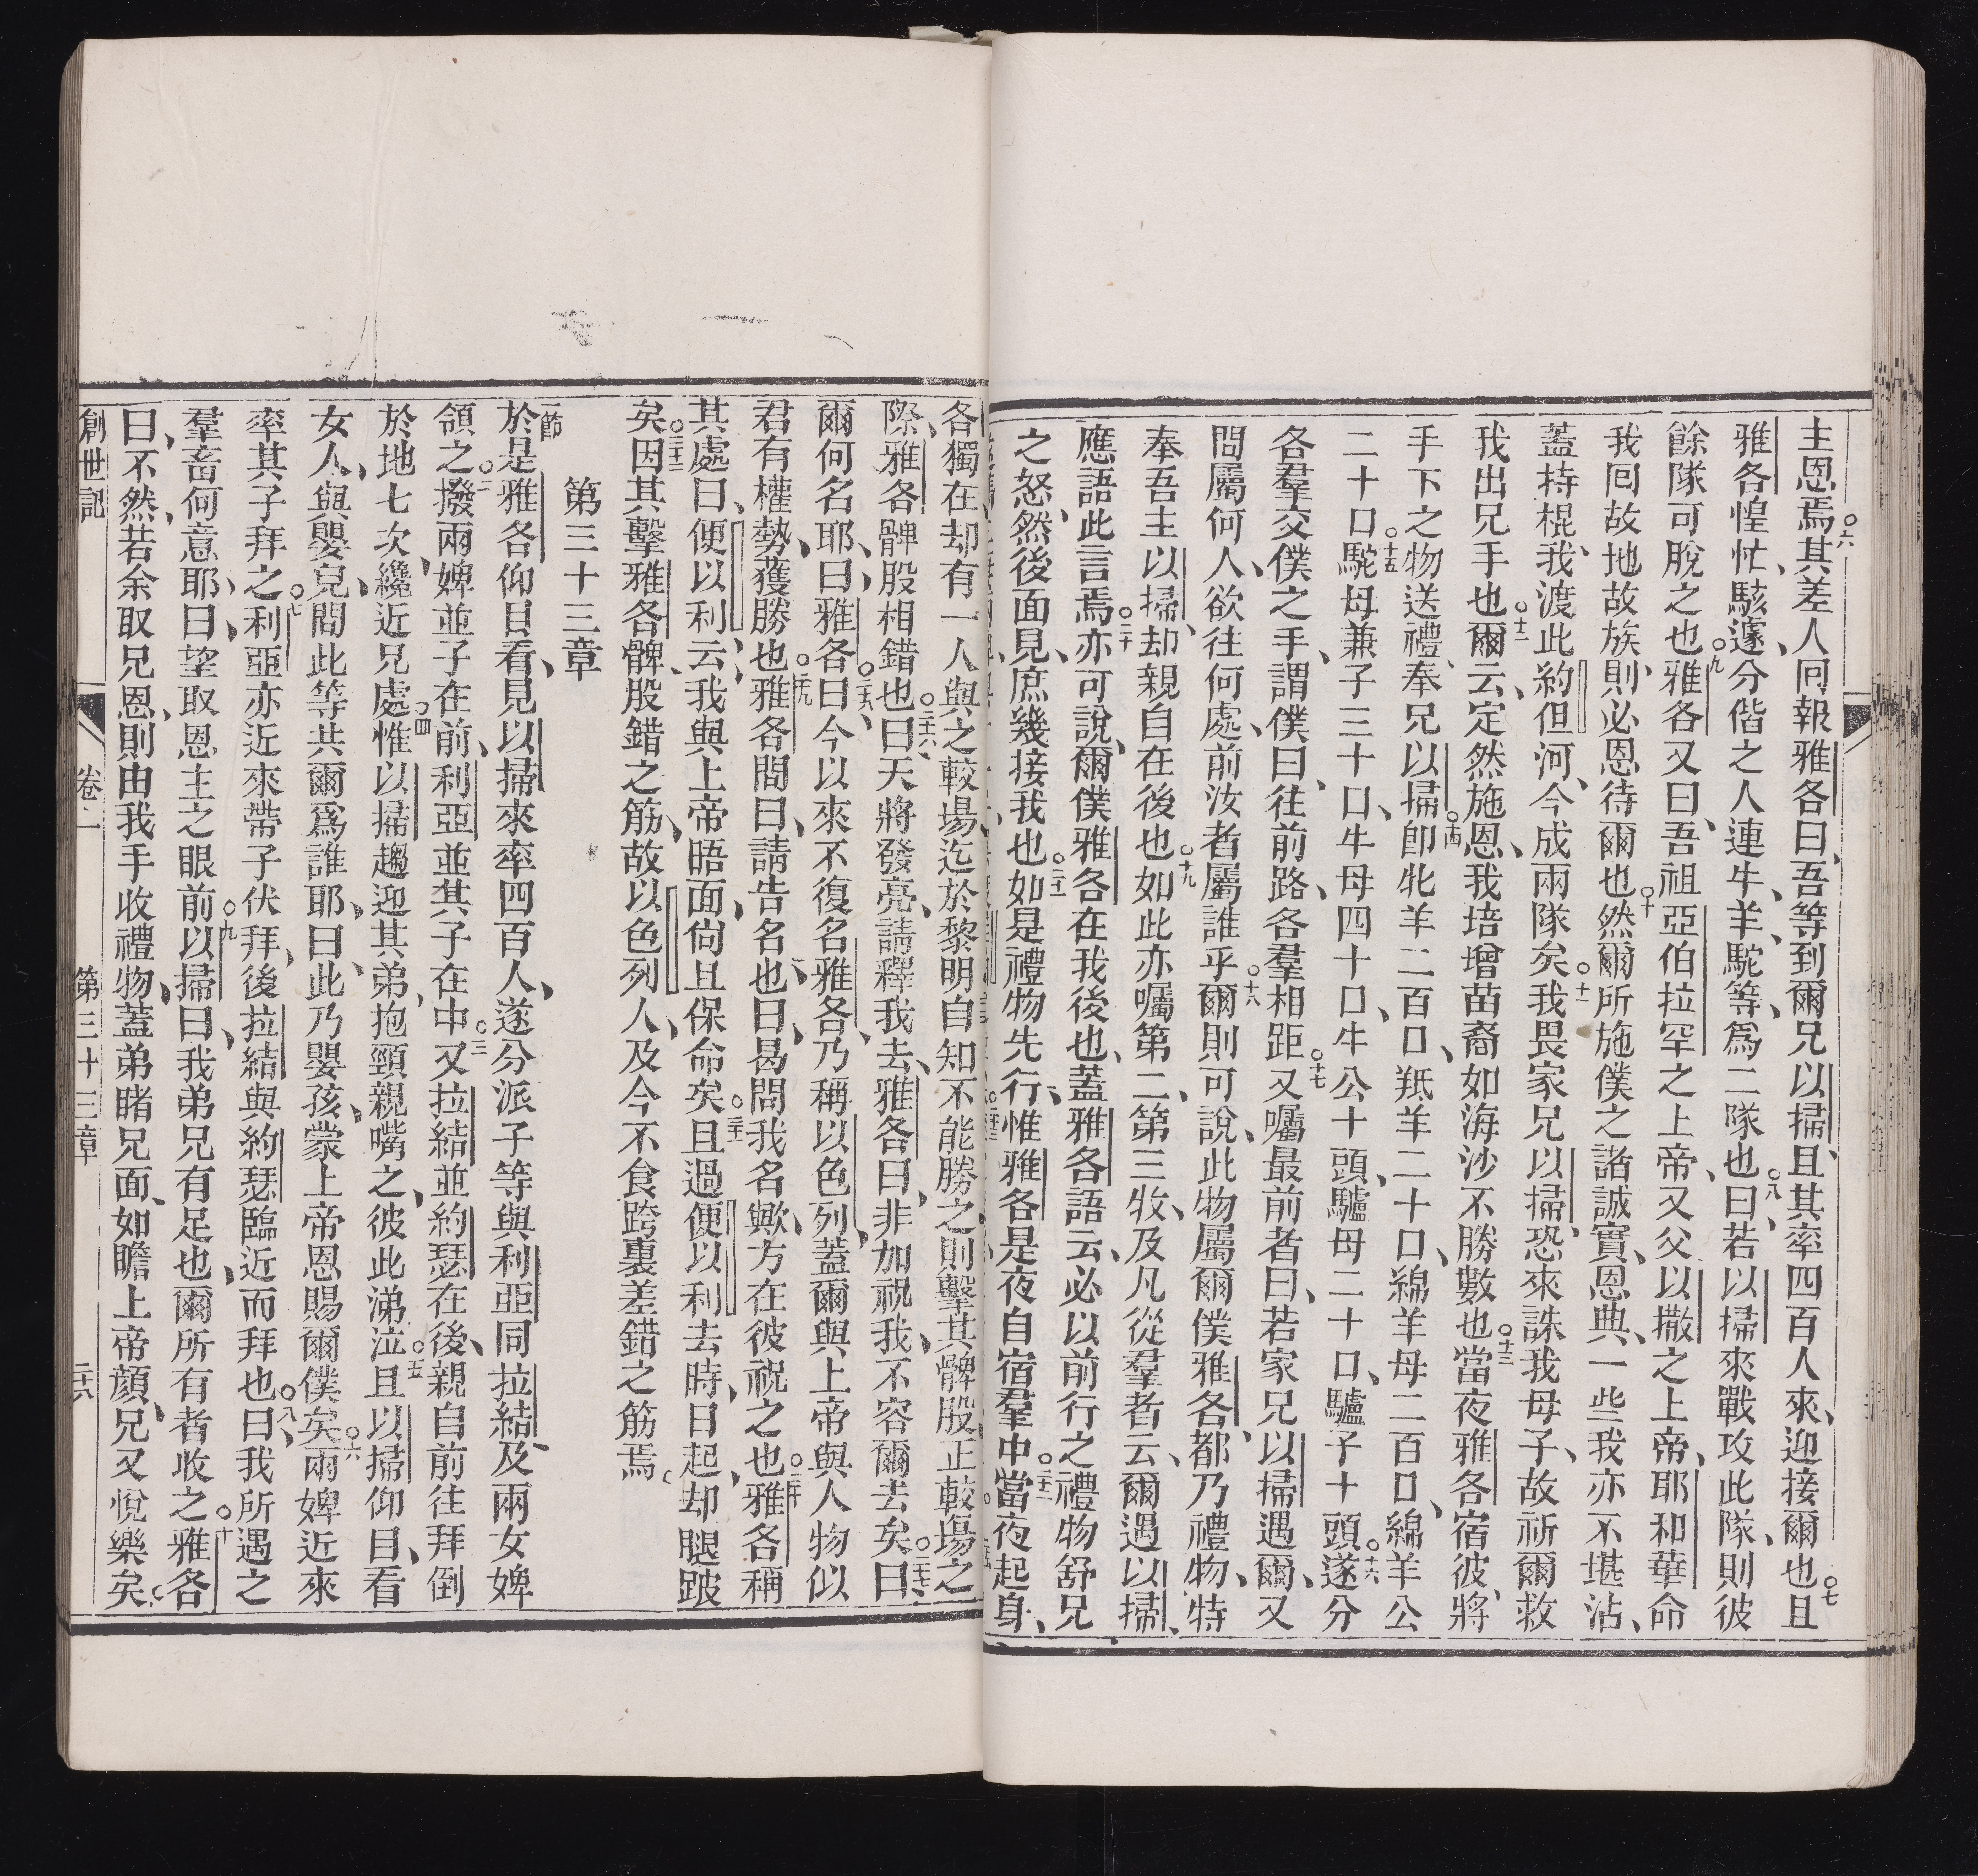 主恩焉○六其差人回報雅各曰、吾等到爾兄以掃、且其率四百人來、迎接爾也○七且
雅各惶忙、駭遽、分偕之人連牛、羊、駝等、爲二隊也○八曰、若以掃來戰攻此隊、則彼
餘隊可脫之也○九雅各又曰、吾祖亞伯拉罕之上帝、又父以撒之上帝、耶和華命
我囘故地故族、則必恩待爾也○十然爾所施僕之諸誠實、恩典、一些我亦不堪沾、
蓋持棍、我渡此約但河、今成兩隊矣○十一我畏家兄以掃、恐來誅我母子、故祈爾救
我出兄手也○十二爾云、定然施恩、我培增苗裔如海沙不勝數也○十三當夜雅各宿彼、將
手下之物送禮、奉兄以掃○十四卽牝羊二百口、羝羊二十口、綿羊母二百口、綿羊公
二十口○十五駝母兼子三十口、牛母四十口、牛公十頭、驢母二十口、驢子十頭○十六遂分
各羣交僕之手、謂僕曰、往前路、各羣相距○十七又囑最前者曰、若家兄以掃遇爾、又
問屬何人、欲往何處、前汝者屬誰乎○十八爾則可說、此物屬爾僕雅各、都乃禮物、特
奉吾主以掃、却親自在後也○十九如此亦囑第二、第三牧、及凡從羣者云、爾遇以掃、
應語此言焉○二十亦可說、爾僕雅各在我後也、蓋雅各語云、必以前行之禮物舒兄
之怒、然後面見、庶幾接我也○二十一如是禮物先行、惟雅各是夜自宿羣中○二十二當夜起身、
各獨在却有一人與之較場迄於黎明自知不能勝之則擊其髀股正較場之
際、雅各髀股相錯也○二十六曰天將發亮、請釋我去、雅各曰、非加祝我、不容爾去矣○二十七曰、
爾何名耶、曰雅各○二十八曰今以來不復名雅各、乃稱以色列、蓋爾與上帝與人物似
君有權勢、獲勝也○二十九雅各問曰、請告名也、曰、曷問我名歟、方在彼祝之也○三十雅各稱
其處曰、便以利、云、我與上帝晤面、尙且保命矣○三十一且過便以利去時、日起、却腿跛
矣○三十二因其擊雅各髀股錯之筋、故以色列人、及今不食跨裏差錯之筋焉○
第三十三章
一節於是雅各仰目看、見以掃來率四百人、遂分派子等與利亞同拉結、及兩女婢
領之○二撥兩婢並子在前、利亞並其子在中○三又拉結並約瑟在後、親自前往拜倒
於地七次、纔近兄處○四惟以掃趨迎其弟、抱頸親嘴之、彼此涕泣○五且以掃仰目、看
女人、與嬰兒、問此等共爾爲誰耶、曰、此乃嬰孩、蒙上帝恩賜爾僕矣○六兩婢近來
率其子拜之○七利亞亦近來帶子伏拜、後拉結與約瑟臨近而拜也○八曰、我所遇之
羣畜何意耶、曰、望取恩主之眼前○九以掃曰、我弟兄有足也、爾所有者收之○十雅各
曰、不然、若余取兄恩、則由我手收禮物、蓋弟睹兄面、如瞻上帝顏、兄又悅樂矣○
創世記　卷一　第三十三章　二十六